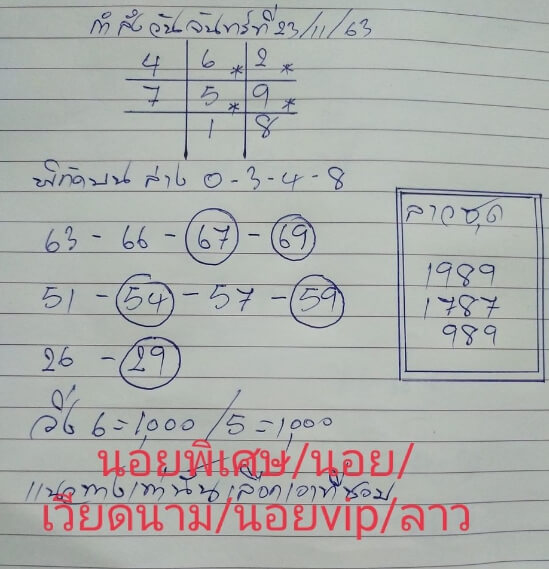 กำลังวันจันทร์ที่ 23/11/63
4 6* 2*
7 5* 9*
1 8
พิกัดบน ล่าง 0-3-4-8
63 - 66 - 67 - 69
51 - 54 - 57 - 59
26 - 29
ลาวชุด
1989
1787
989
วิ่ง 6=1,000/5=1,000
นอยพิเศษ/นอย/
แนวทางเท่านั้นเลือกเอาที่ชอบ
เวียดนาม/นอยvip/ลาว